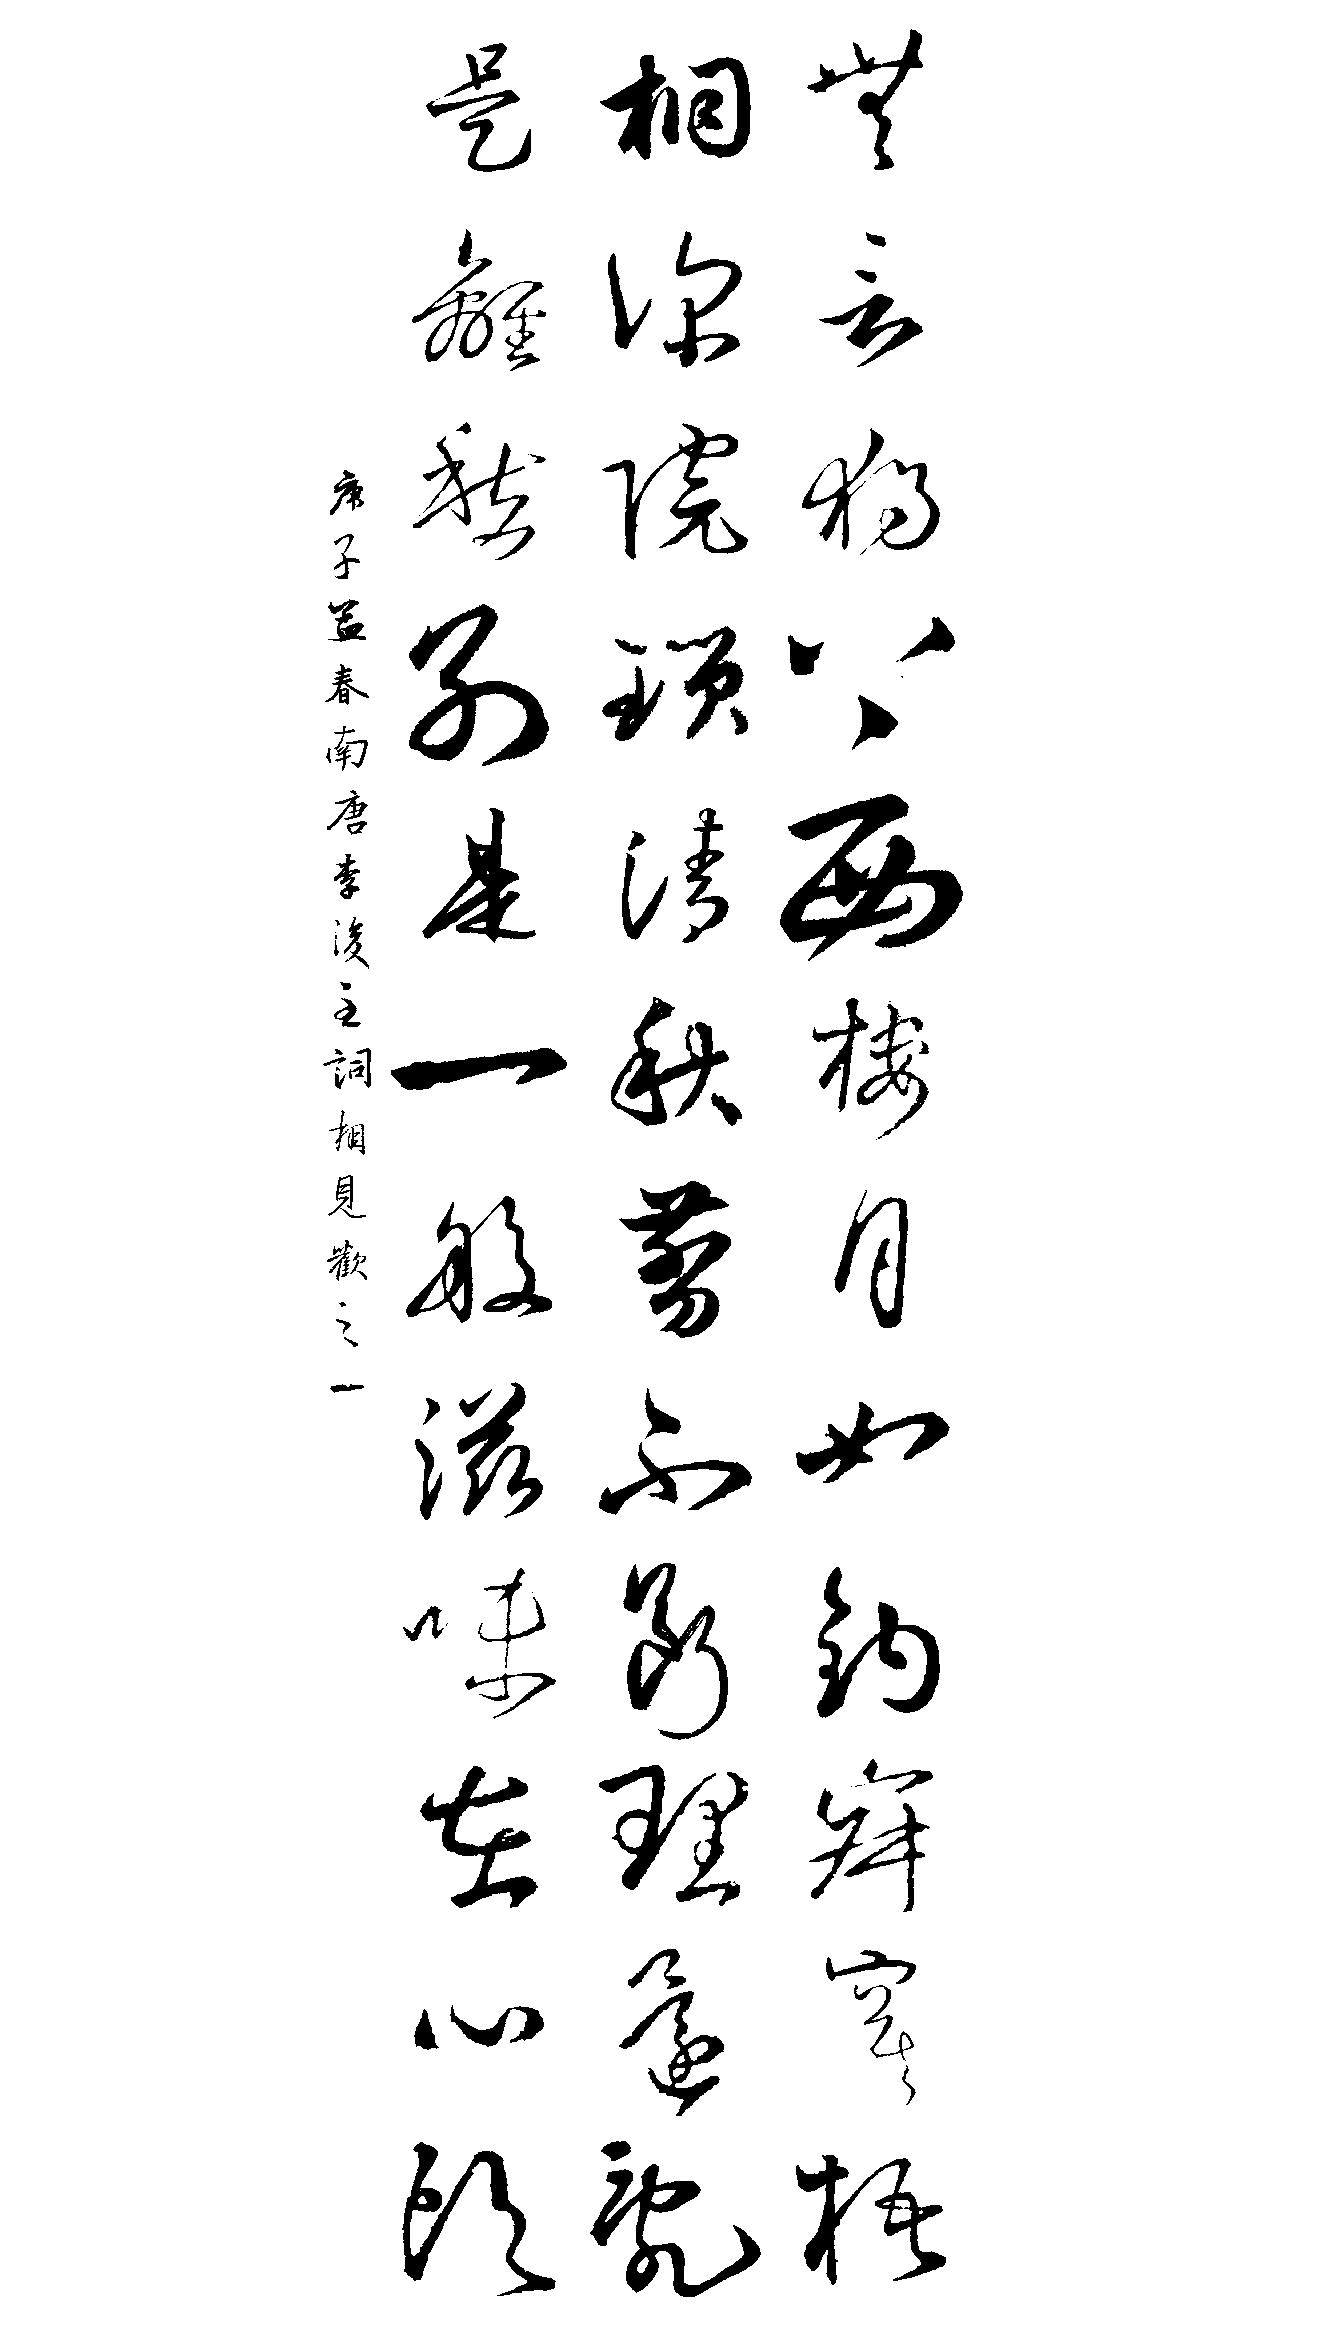 無言獨上西樓月如鉤寂寞梧
桐深院鎖清秋剪不斷理還亂
是離愁別是一般滋味在心頭
庚子孟春南唐李後主詞相見歡之一